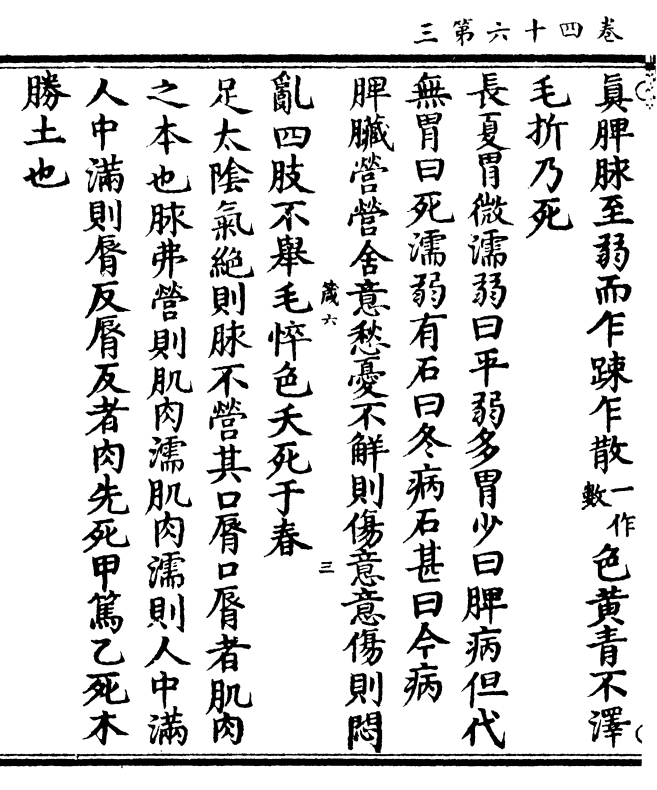 卷四十六第三
眞脾脉至弱而乍踈乍散一作數色黄青不澤
毛折乃死
長夏胃微濡弱曰平弱多胃少曰脾病但代
無胃曰死濡弱有石曰冬病石甚曰今病
脾臟營營舍意愁憂不解則傷意意傷則悶
箴六
三
亂四肢不舉毛悴色夭死于春
足太陰氣絶則脉不營其口脣口脣者肌肉
之本也脉弗營則肌肉濡肌肉濡則人中滿
人中滿則脣反脣反者肉先死甲篤乙死木
勝土也